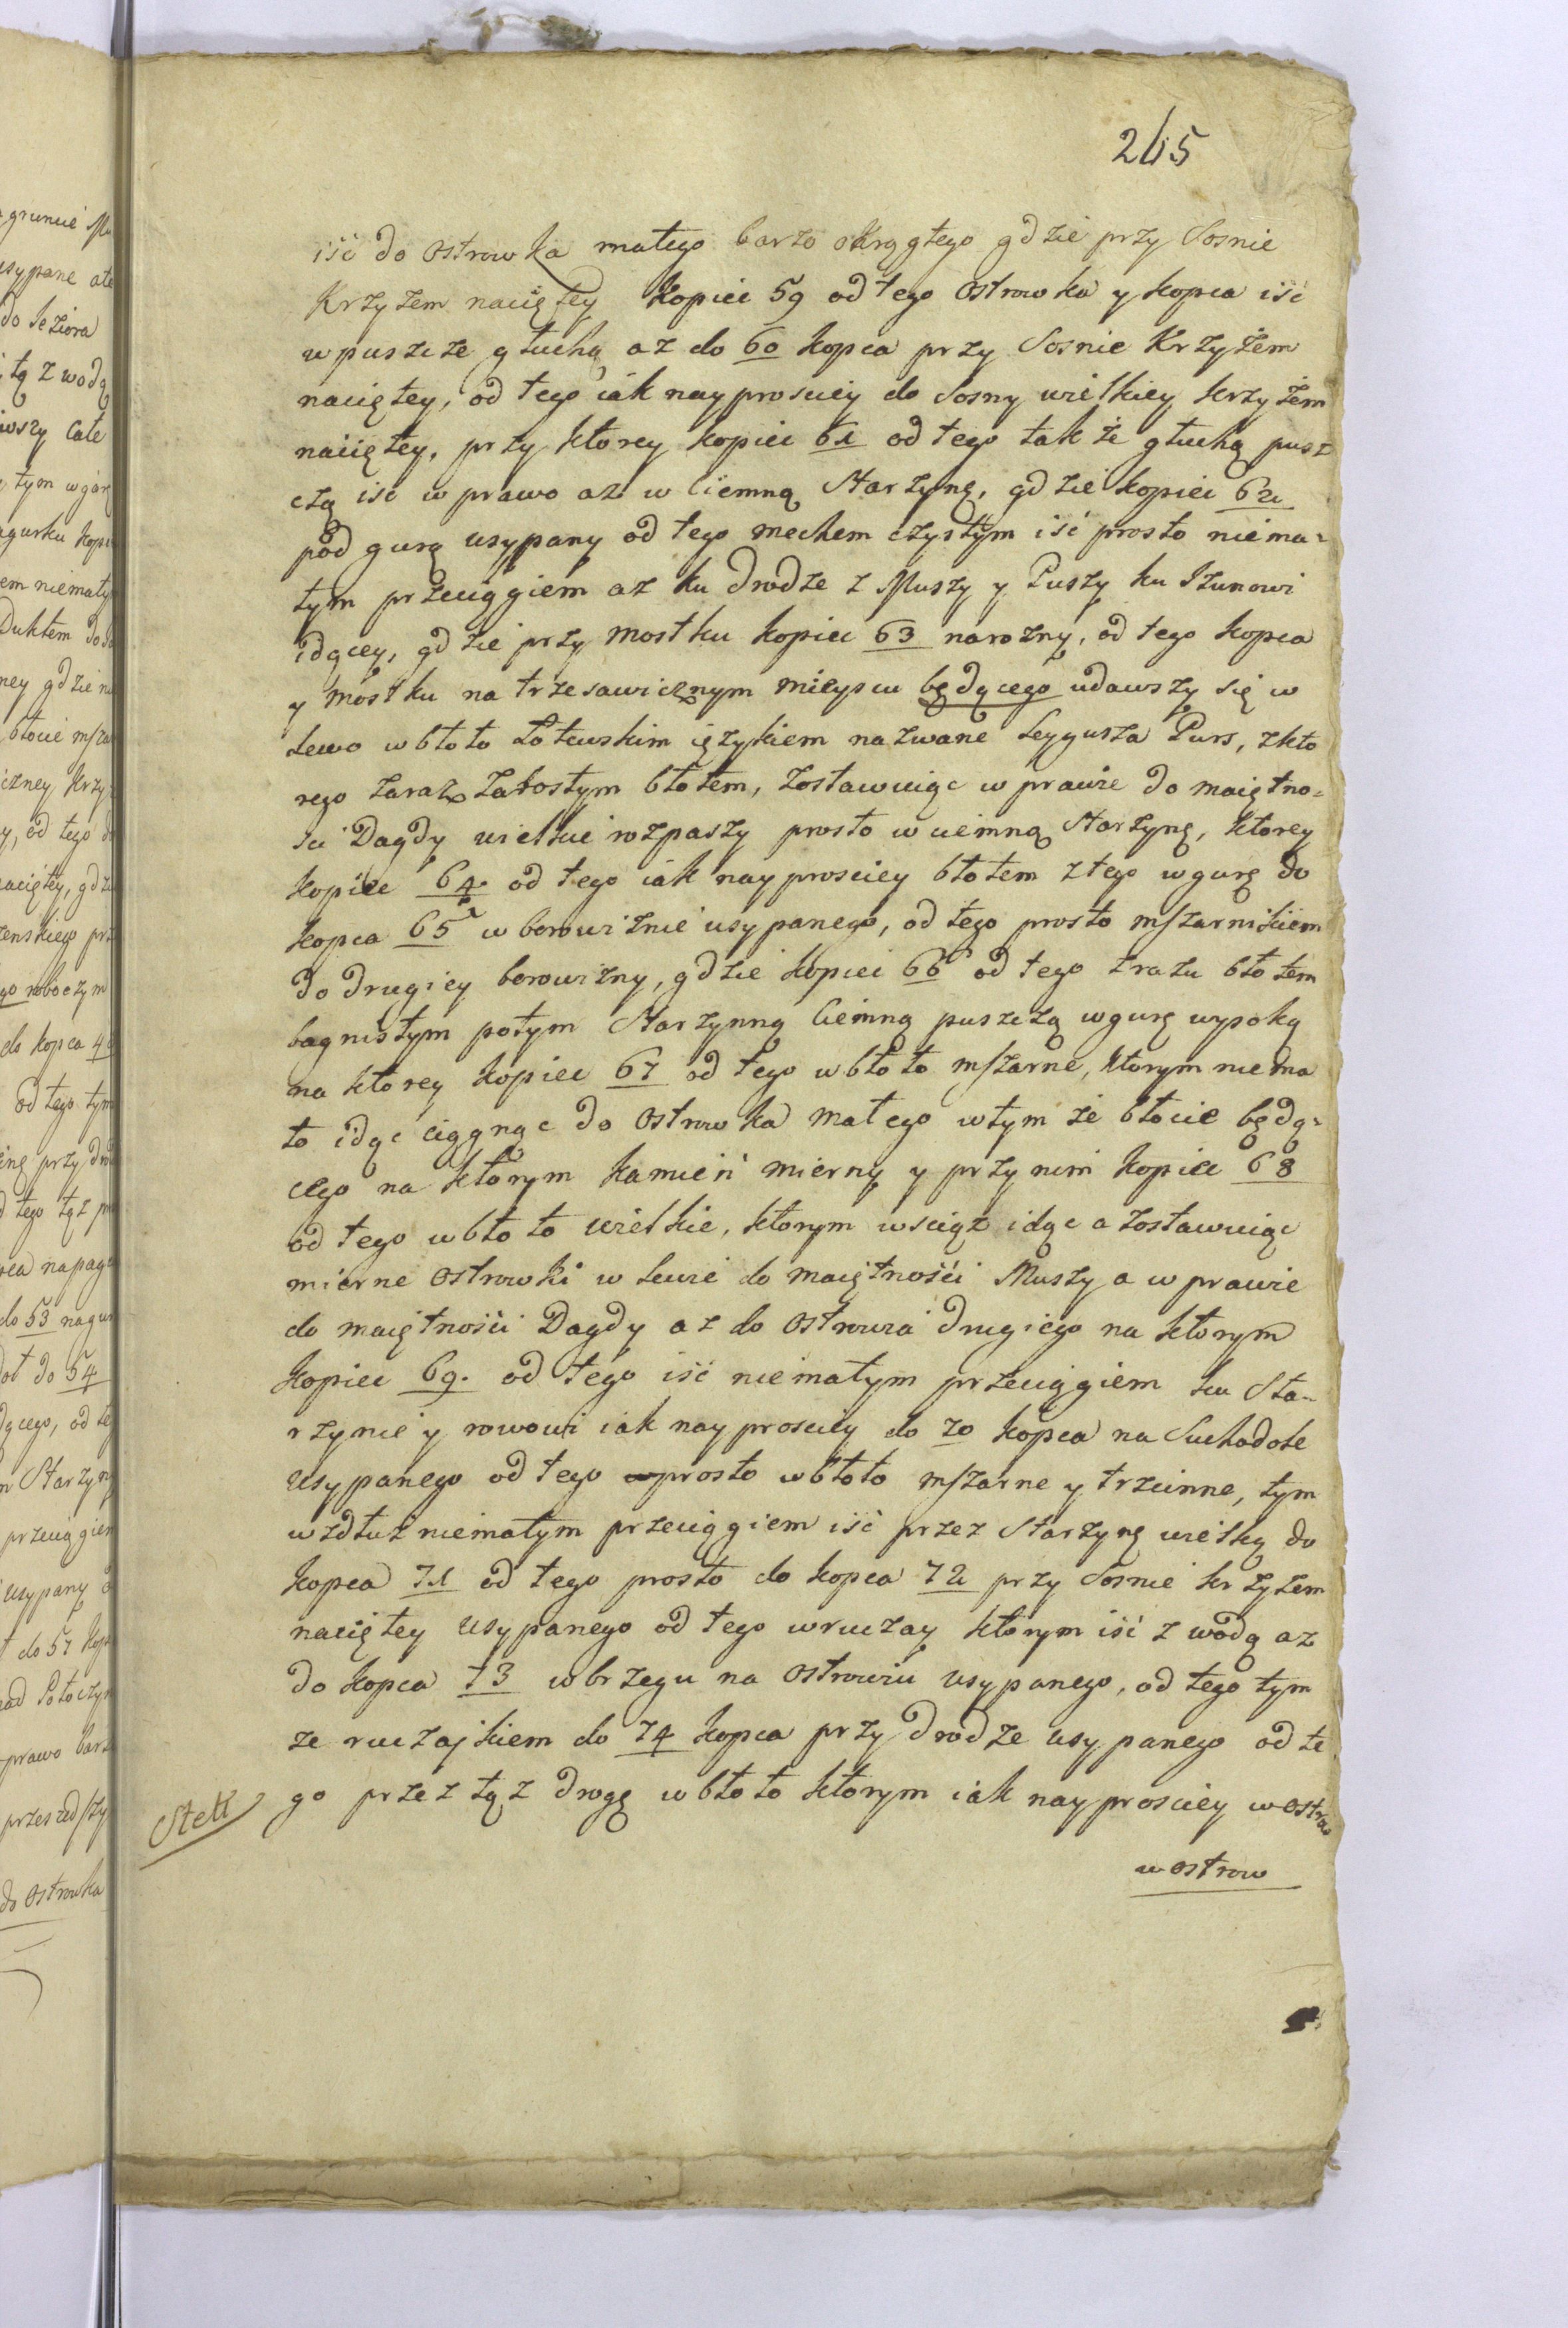 265
iść do ostrowka małego barzo okrągłego gdzie przy Sosnie
Krzyżem naciętey kopiec 59 od tego ostrowka y kopca iść
w puszcze głuchą az do 60 kopca przy Sosnie Krzyżem
naciętey, od tego iak nayprosciey do Sosny wielkiey krzyżem
naciętey, przy ktorey kopiec 61 od tego także głuchą pusz
czą iść w prawo az w Ciemną Starzynę, gdzie kopiec 62
pod gurą usypany od tego mechem czystym iść prosto niema=
łym przeciągiem az ku drodze z Muszy y Puszy ku Izunowi
idącey, gdzie przy mostku kopiec 63 narozny, od tego kopca
y mostku na trzesawicznym mieyscu będącego udawszy się w
Lewo w błoto Łotewskim ięzykiem nazwane Leygusza Purs, z kto
rego zaraz zarostym błotem, zostawuiąc w prawie do maiętno=
sci Dagdy wielkie rozpaszy prosto w ciemną Starzynę, ktorey
kopiec 64. od tego iak nayprosciey błotem z tego w gurę do
kopca 65 w borowiznie usypanego, od tego prosto mszarnikiem
do drugiey borowizny, gdzie kopiec 66 od tego zrazu błotem
bagnistym potym Starzynną Ciemną puszczą w gurę wysoką
na ktorey kopiec 67 od tego w błoto mszarne, ktorym niema
ło idąc ciągnąc do Ostrowka małego w tym że błocie będą=
cego na ktorym kamień mierny y przy nim kopiec 68
od tego w błoto wielkie, ktorym wciąż idąc a zostawuiąc
mierne ostrowki w Lewie do maiętności Muszy a w prawie
do maiętności Dagdy az do Ostrowia drugiego na ktorym
kopiec 69. od tego iść niemałym przeciągiem ku Sta=
rzynie y rowowi iak nayprosciey do 70 kopca na Suchodole
usypanego od tego prosto w błoto mszarne y trzcinne, tym
wzdłuż niemałym przeciągiem iść przez Starzynę wielką do
kopca 71 od tego prosto do kopca 72 przy Sosnie krzyzem
naciętey usypanego od tego w ruczay ktorym iść z wodą az
do kopca 73 w brzegu na Ostrowiu usypanego, od tego tym
ze ruczajkiem do 74 kopca przy drodze usypanego od te
go przez tąz drogę w błoto ktorym iak nayprosciey w ostrow
w ostrow